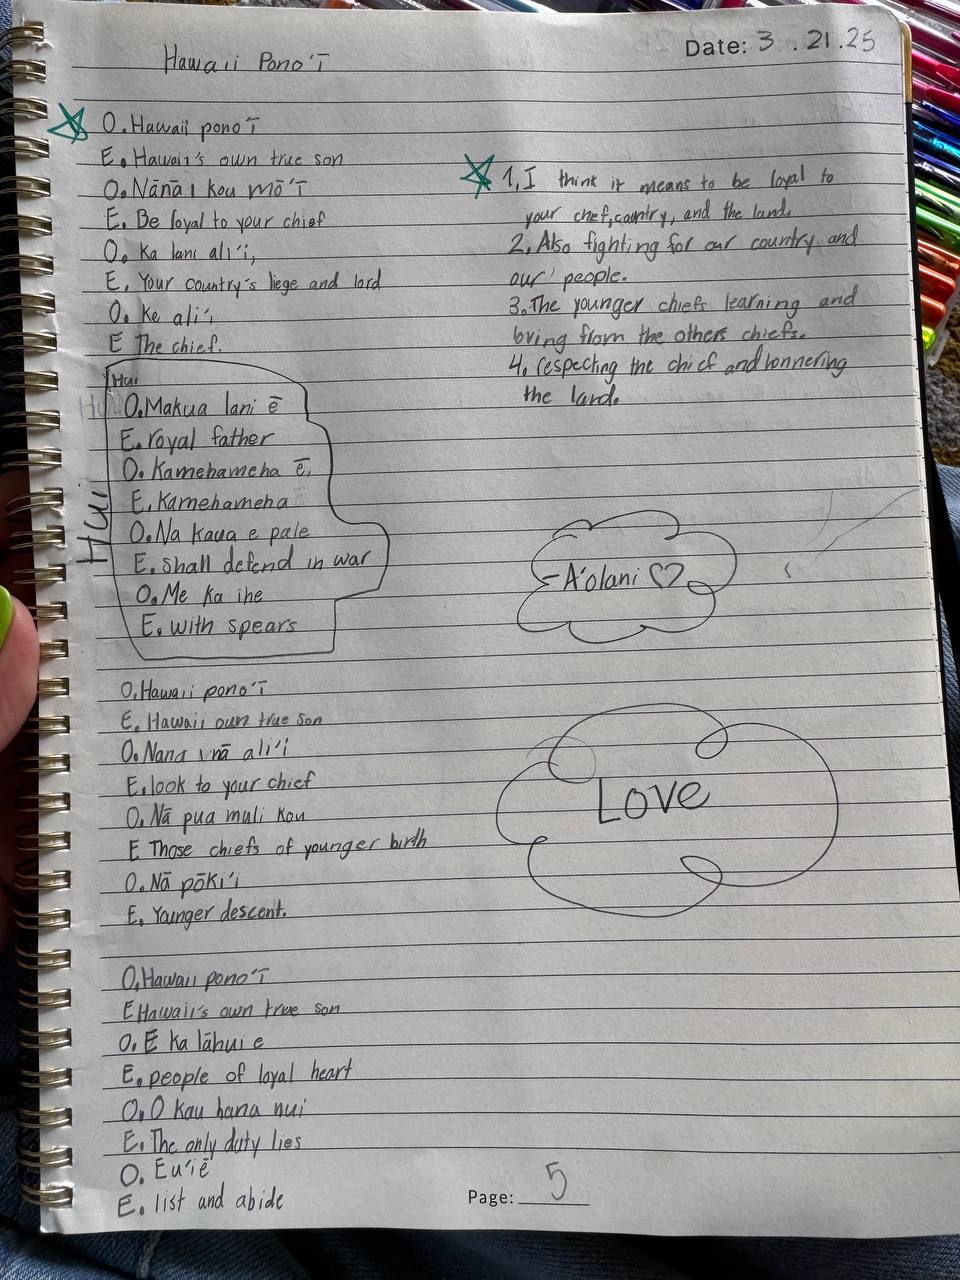 Hawaii Pono'ī
Date: 3.21.25
O. Hawaii pono'ī
E. Hawaii's own true son
O. Nānā i kou mō'ī
E. Be loyal to your chief
O. Ka lani ali'i,
E. Your country's liege and lord
O. Ke ali'i
E The chief.
Hui
Hui
O. Makua lani ē
E. royal father
O. Kamehameha ē,
E. Kamehameha
O. Na kaua e pale
E. shall defend in war
O. Me ka ihe
E. with spears
O. Hawaii pono'ī
E. Hawaii own true son
O. Nana i nā ali'i
E. look to your chief
O. Nā pua muli kou
E Those chiefs of younger birth
O. Nā pōki'i
E. Younger descent.
O. Hawaii pono'ī
E Hawaii's own true son
O. E ka lāhui e
E. people of loyal heart
O. O kau hana nui
E. The only duty lies
O. Eu'iē
E. list and abide
1. I think it means to be loyal to
your chef, country, and the land.
2. Also fighting for our country and
our people.
3. The younger chiefs learning and
bring from the others chiefs.
4. respecting the chief and honnering
the land.
-A'olani ♡
Love
Page: 5